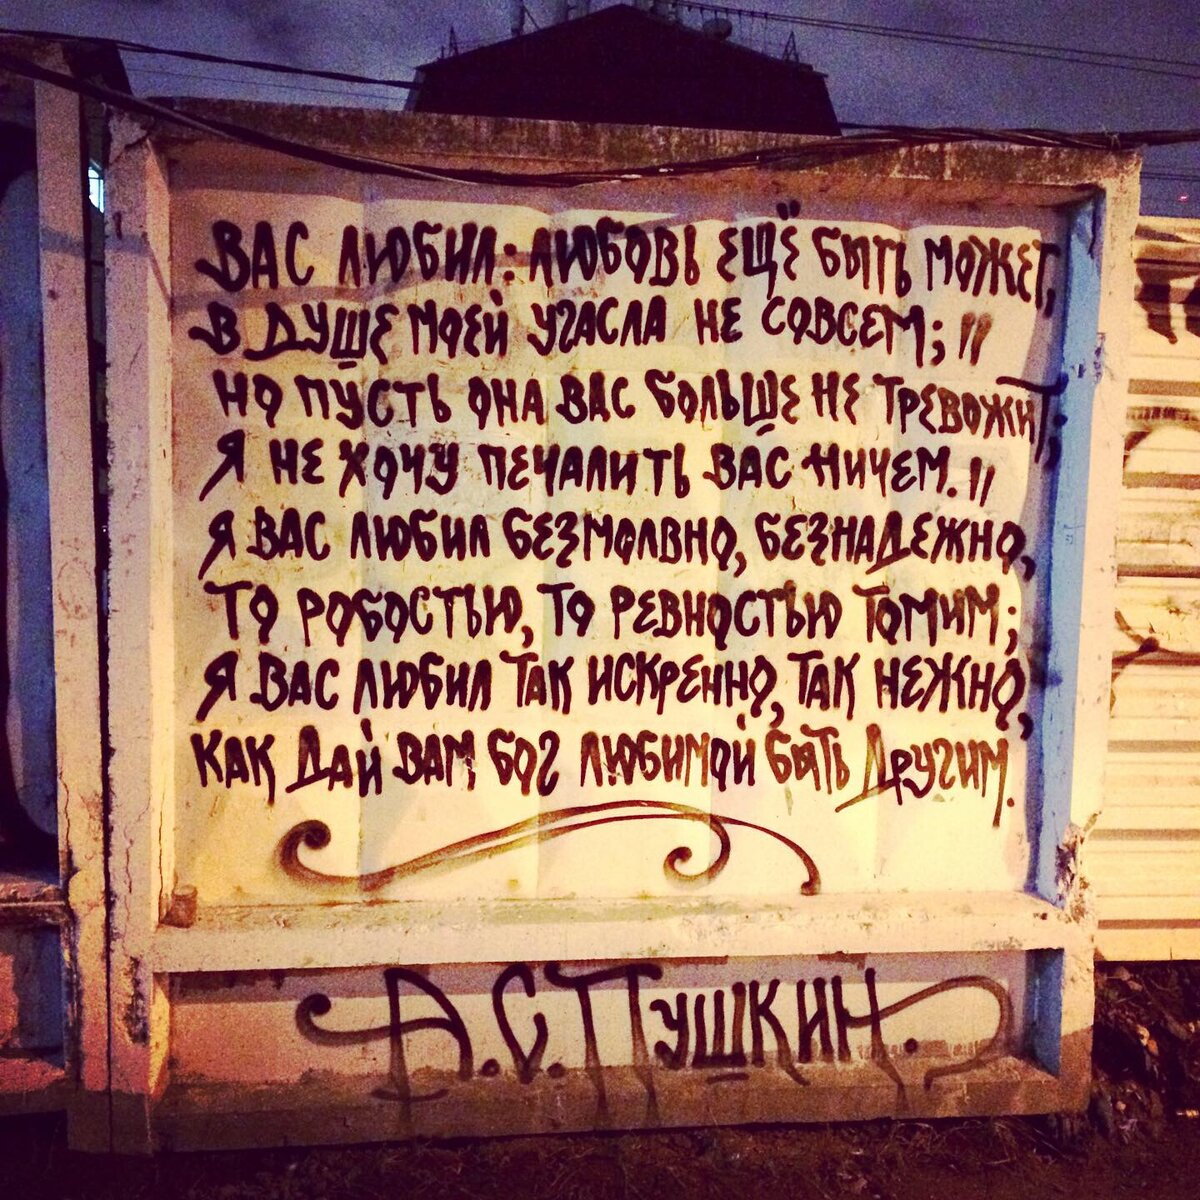 ВАС ЛЮБИЛ: ЛЮБОВЬ ЕЩЁ БЫТЬ МОЖЕТ,
В ДУШЕ МОЕЙ УГАСЛА НЕ СОВСЕМ; //
НО ПУСТЬ ОНА ВАС БОЛЬШЕ НЕ ТРЕВОЖИТ;
Я НЕ ХОЧУ ПЕЧАЛИТЬ ВАС НИЧЕМ. //
Я ВАС ЛЮБИЛ БЕЗМОЛВНО, БЕЗНАДЕЖНО,
ТО РОБОСТЬЮ, ТО РЕВНОСТЬЮ ТОМИМ;
Я ВАС ЛЮБИЛ ТАК ИСКРЕННО, ТАК НЕЖНО,
КАК ДАЙ ВАМ БОГ ЛЮБИМОЙ БЫТЬ ДРУГИМ.
А.С.ПУШКИН.